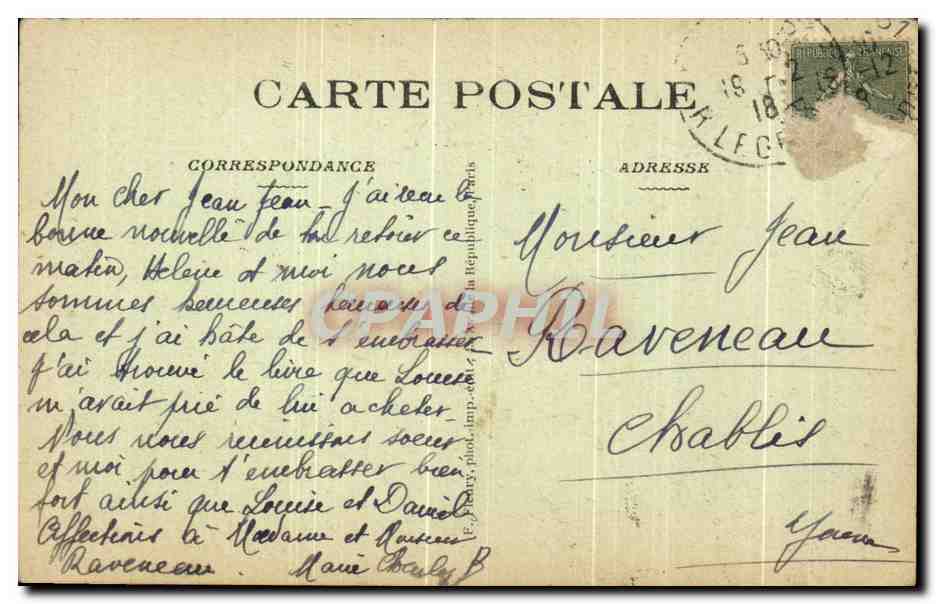 CARTE POSTALE
CORRESPONDANCE
ADRESSE
REPUBLIQUE FRANÇAISE
Mon cher Jean Jean - J'ai eu la
bonne nouvelle de ton retour ce
matin, Helene et moi nous
sommes heureuses heureuses de
cela et j'ai hâte de t'embrasser
J'ai trouvé le livre que Louise
m'avait prié de lui acheter -
Nous nous réunissons soeur
et moi pour t'embrasser bien
fort ainsi que Louise et Daniel
Affections à Madame et Monsieur
Raveneau. Marie B
Monsieur Jean
Raveneau
Chablis
Yonne
F. Fleury, phot.-imp.-édit., de la République, Paris
CPAPHIL